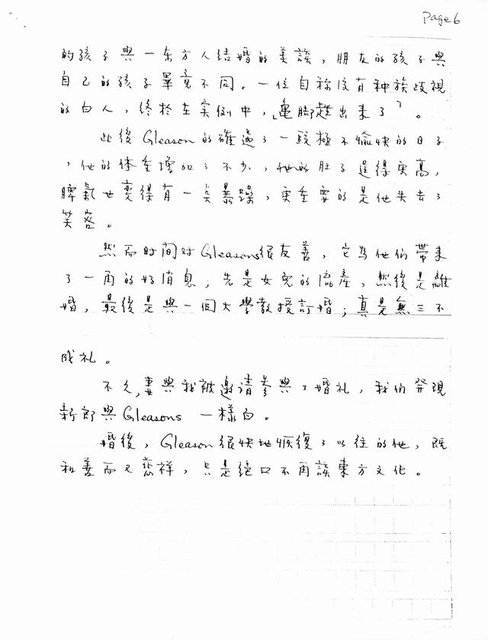 Page 6
的孩子與一东方人结婚的美談，朋友的孩子與
自己的孩子畢竟不同。一位自称沒有种族歧視
的白人，終於在实例中，「亀脚趐出来了」。
此後Gleason的確過了一段極不愉快的日子
，他的体重增加了不少，他的肚子逗得更高，
脾氣也变得有一点暴躁，更重要的是他失去了
笑容。
然而时间对Gleasons很友善，它為他们帶来
了一連的好消息，先是女兒的流產，然後是離
婚，最後是與一個大學教授訂婚；真是無三不
成礼。
不久，妻與我被邀请參與了婚礼，我们發現
新郎與Gleasons 一樣白。
婚後，Gleason很快地恢復了以往的他，既
和善而又慈祥，只是绝口不再談東方文化。